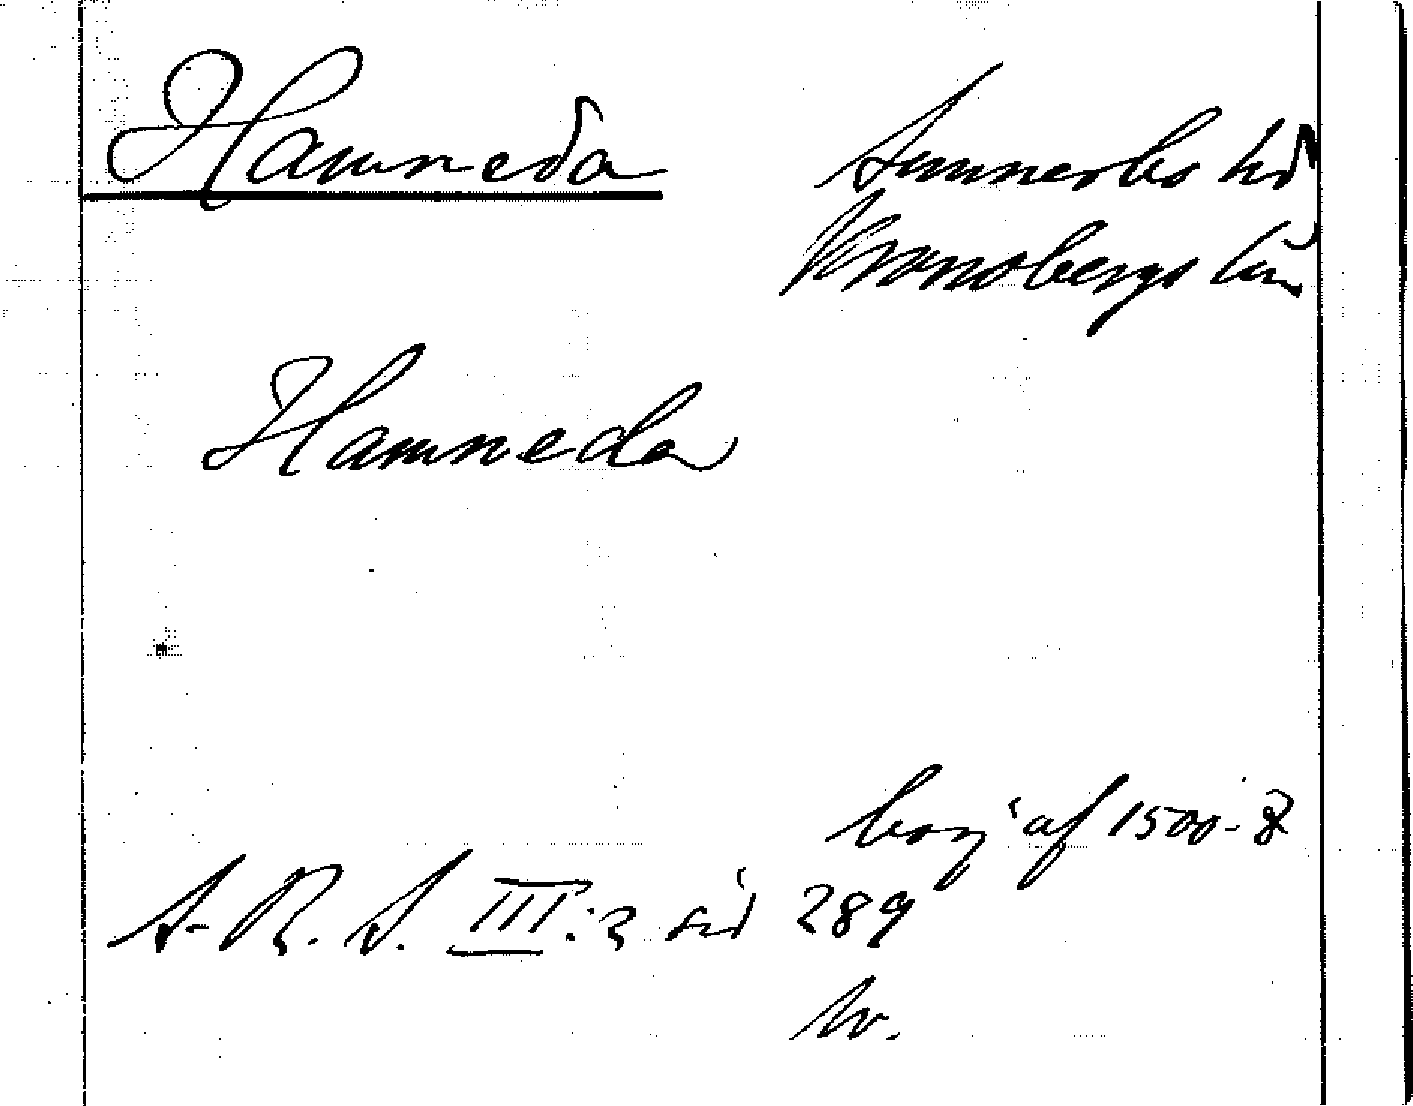 Hamneda
Sunnerbo hd
Kronobergs län
Hamneda
börj. af 1500-t
S. R. S. III:2 sid 289
hv.